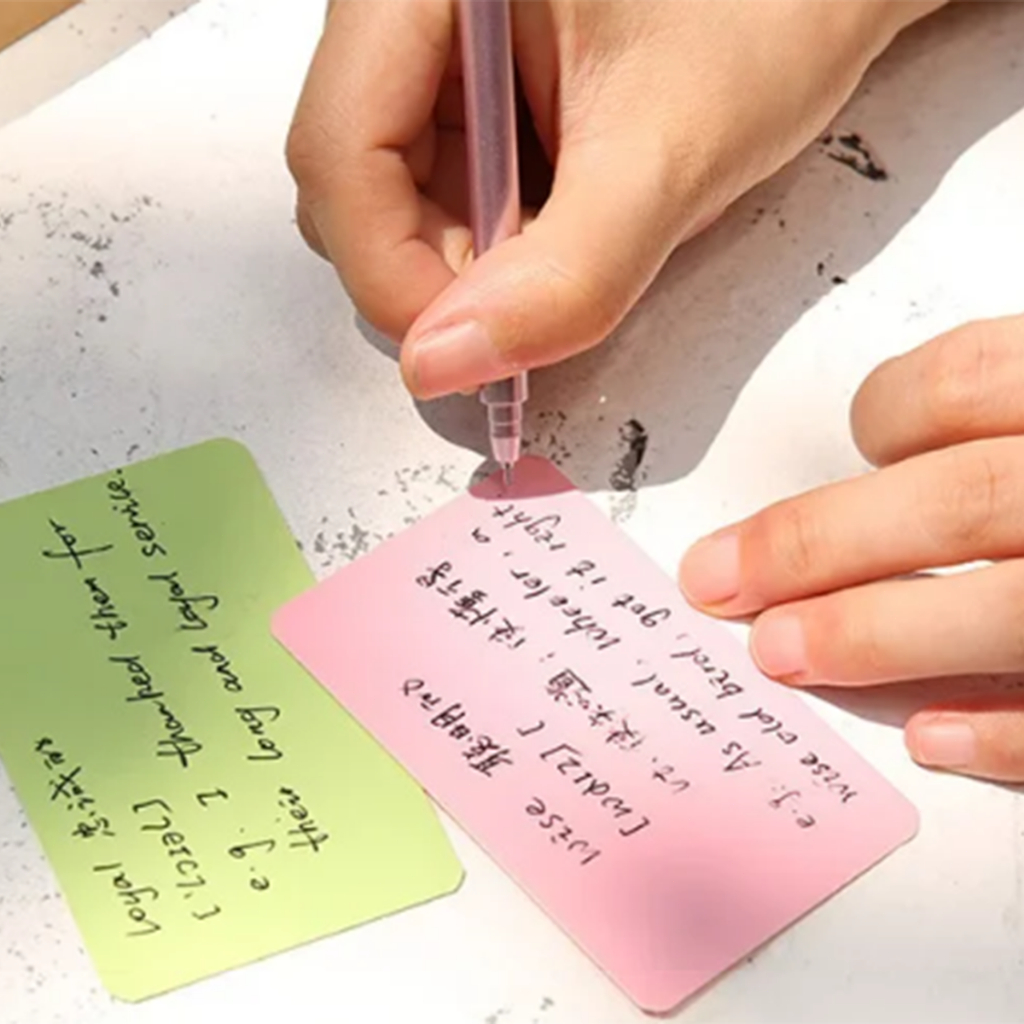 loyal 忠诚的
['lɔɪəl]
e.g. I thanked them for
their long and loyal service.
wise 聪明的
[waɪz]
vt. 使知道;使懂得
e.g. As usual, Wheeler, a
wise old bird, got it right